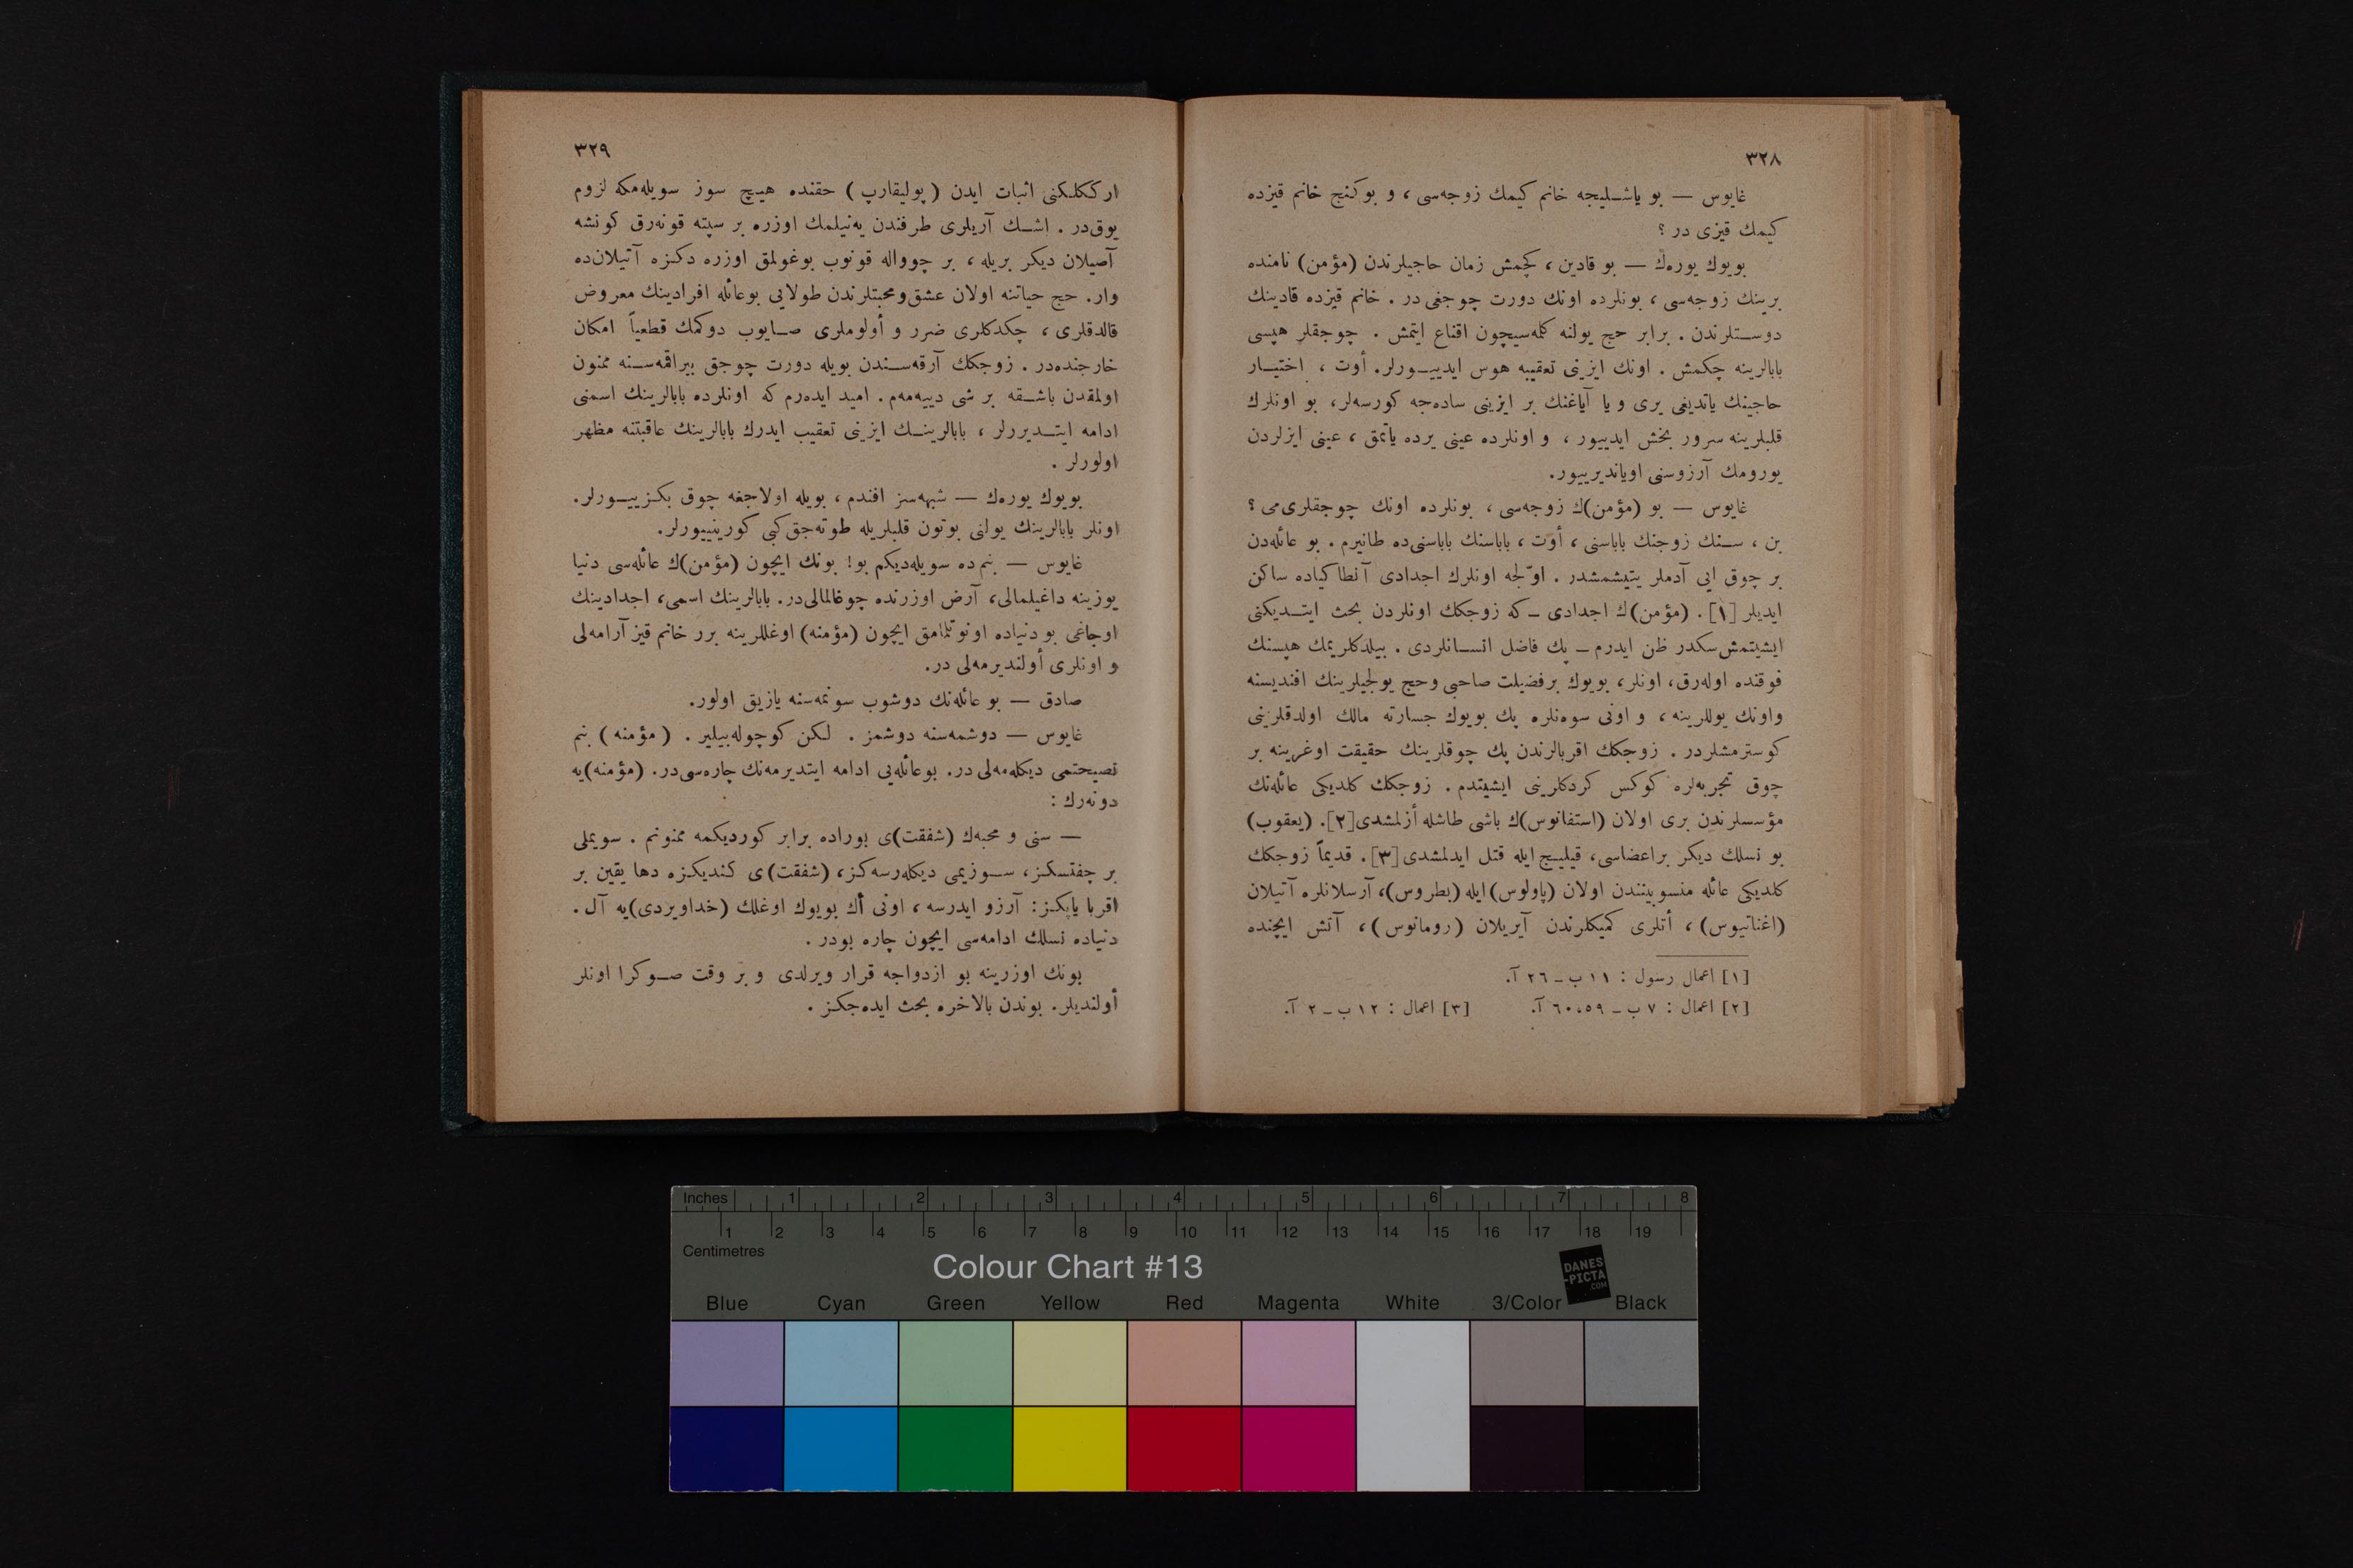 ٣٢٨
غايوس — بو ياشليجه خانم كيمك زوجه‌سى ، و بو كنج خانم قيزده
كيمك قيزى در ؟
بويوك يوره‌ك — بو قادين ، كچمش زمان حاجيلرندن (مؤمن) نامنده
برينك زوجه‌سى ، بونلرده اونك دورت چوجغى در . خانم قيزده قادينك
دوستلرندن . برابر حج يولنه كلمه‌سيچون اقناع ايتمش . چوجقلر هپسى
بابالرينه چكمش . اونك ايزينى تعقيبه هوس ايدييورلر . أوت ، اختيار
حاجينك ياتديغى يرى و يا آياغنك بر ايزينى ساده‌جه كورسه‌لر ، بو اونلرك
قلبلرينه سرور بخش ايدييور ، و اونلرده عينى يرده ياتمق ، عينى ايزلردن
يورومك آرزوسنى اوياندیرييور .
غايوس — بو (مؤمن)ك زوجه‌سى ، بونلرده اونك چوجقلرى‌مى ؟
بن ، سنك زوجنك باباسنى ، أوت ، باباسنك باباسنى‌ده طانيرم . بو عائله‌دن
بر چوق ايى آدملر يتيشمشدر . اوّلجه اونلرك اجدادى آنطاكياده ساكن
ايديلر [١] . (مؤمن)ك اجدادى ــ كه زوجكك اونلردن بحث ايتديكنى
ايشيتمش‌سكدر ظن ايدرم ــ پك فاضل انسانلردى . بيلدكلريمك هپسنك
فوقنده اوله‌رق ، اونلر ، بويوك برفضيلت صاحبى وحج يولجيلرينك افنديسنه
واونك يوللرينه ، و اونى سوه‌نلره پك بويوك جسارته مالك اولدقلرينى
كوسترمشلردر . زوجكك اقربالرندن پك چوقلرينك حقيقت اوغرينه بر
چوق تجربه‌لره كوكس كردكلرينى ايشيتدم . زوجكك كلديكى عائله‌نك
مؤسسلرندن برى اولان (استفانوس)ك باشى طاشله أزلمشدى[٢] . (يعقوب)
بو نسلك ديكر براعضاسى ، قيليج ايله قتل ايدلمشدى[٣] . قديماً زوجكك
كلديكى عائله منسوبيتندن اولان (پاولوس) ايله (بطروس) ، آرسلانلره آتيلان
(اغناتيوس) ، أتلرى كميكلرندن آيريلان (رومانوس) ، آتش ايچنده
[١] اعمال رسول : ١١ ب ــ ٢٦ آ.
[٢] اعمال : ٧ ب ــ ٥٩،٦٠ آ. [٣] اعمال : ١٢ ب ــ ٢ آ.
٣٢٩
ارككلكنى اثبات ايدن (پوليقارپ) حقنده هيچ سوز سويله‌مكه لزوم
يوق‌در . اشك آريلرى طرفندن يه‌نيلمك اوزره بر سپته قونه‌رق كونشه
آصيلان ديكر بريله ، بر چوواله قونوب بوغولمق اوزره دكزه آتيلان‌ده
وار. حج حياتنه اولان عشق‌ومحبتلرندن طولايى بوعائله افرادينك معروض
قالدقلرى ، چكدكلرى ضرر و أولوملرى صايوب دوكمك قطعياً امكان
خارجنده‌در . زوجكك آرقه‌سندن بويله دورت چوجق بيراقمه‌سنه ممنون
اولمقدن باشقه بر شى دييه‌مه‌م . اميد ايده‌رم كه اونلرده بابالرينك اسمنى
ادامه ايتديررلر ، بابالرينك ايزينى تعقيب ايدرك بابالرينك عاقبتنه مظهر
اولورلر .
بويوك يوره‌ك — شبهه‌سز افندم ، بويله اولاجغه چوق بكزييورلر.
اونلر بابالرينك يولنى بوتون قلبلريله طوته‌جق كبى كورينييورلر.
غايوس — بنم‌ده سويله‌ديكم بو! بونك ايچون (مؤمن)ك عائله‌سى دنيا
يوزينه داغيلمالى، آرض اوزرنده چوغالمالى‌در. بابالرينك اسمى، اجدادينك
اوجاغى بو دنياده اونوتلمامق ايچون (مؤمنه) اوغللرينه برر خانم قيز آرامه‌لى
و اونلرى أولنديرمه‌لى در.
صادق — بو عائله‌نك دوشوب سونمه‌سنه يازيق اولور.
غايوس — دوشمه‌سنه دوشمز . لكن كوچوله‌بيلير . (مؤمنه) بنم
نصيحتمى ديكله‌مه‌لى در. بوعائله‌يى ادامه ايتديرمه‌نك چاره‌سى‌در. (مؤمنه)يه
دونه‌رك :
— سنى و محبه‌ك (شفقت)ى بوراده برابر كورديكمه ممنونم . سويملى
بر چفتسكز، سوزيمى ديكله‌رسه‌كز، (شفقت)ى كنديكزه دها يقين بر
اقربا ياپكز: آرزو ايدرسه ، اونى أك بويوك اوغلك (خداويردى)يه آل .
دنياده نسلك ادامه‌سى ايچون چاره بودر .
بونك اوزرينه بو ازدواجه قرار ويرلدى و بر وقت صوكرا اونلر
أولنديلر. بوندن بالاخره بحث ايده‌جكز .
Inches 1 2 3 4 5 6 7 8
1 2 3 4 5 6 7 8 9 10 11 12 13 14 15 16 17 18 19
Centimetres
Colour Chart #13
DANES
-PICTA
.COM
Blue Cyan Green Yellow Red Magenta White 3/Color Black